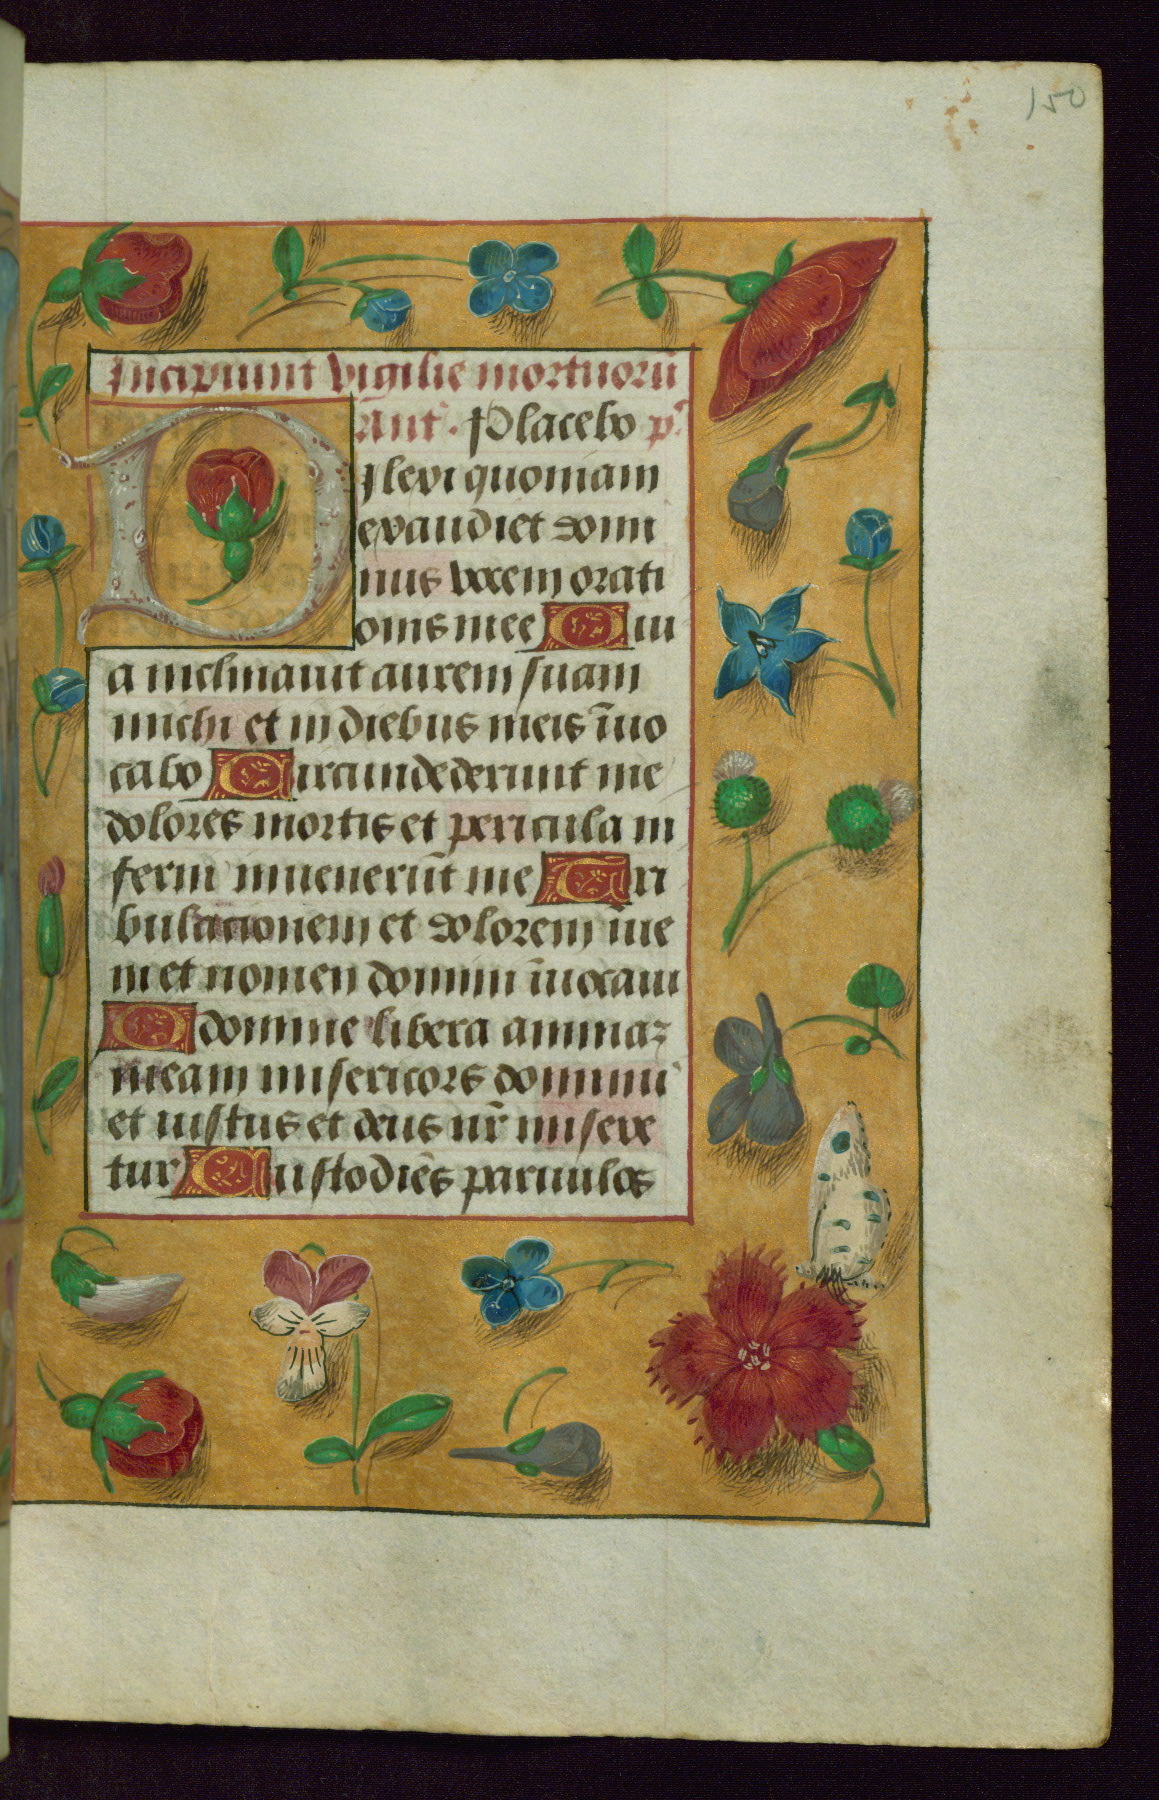 150
Incipiunt vigilie mortuorū
Ant̄. Placebo p̄s
Dilexi quoniam
exaudiet domi
nus vocem orati
onis mee Quı
a inclinauit aurem suam
michi et in diebus meis īuo
cabo Circumdederunt me
dolores mortis et pericula in
ferni inuenerūt me Tri
bulacionem et dolorem īue
ni et nomen domini īuocaui
O domine libera animaʒ
meam misericors dominu
et iustus et deus nr̄ misere
tur Custodiēs paruulos